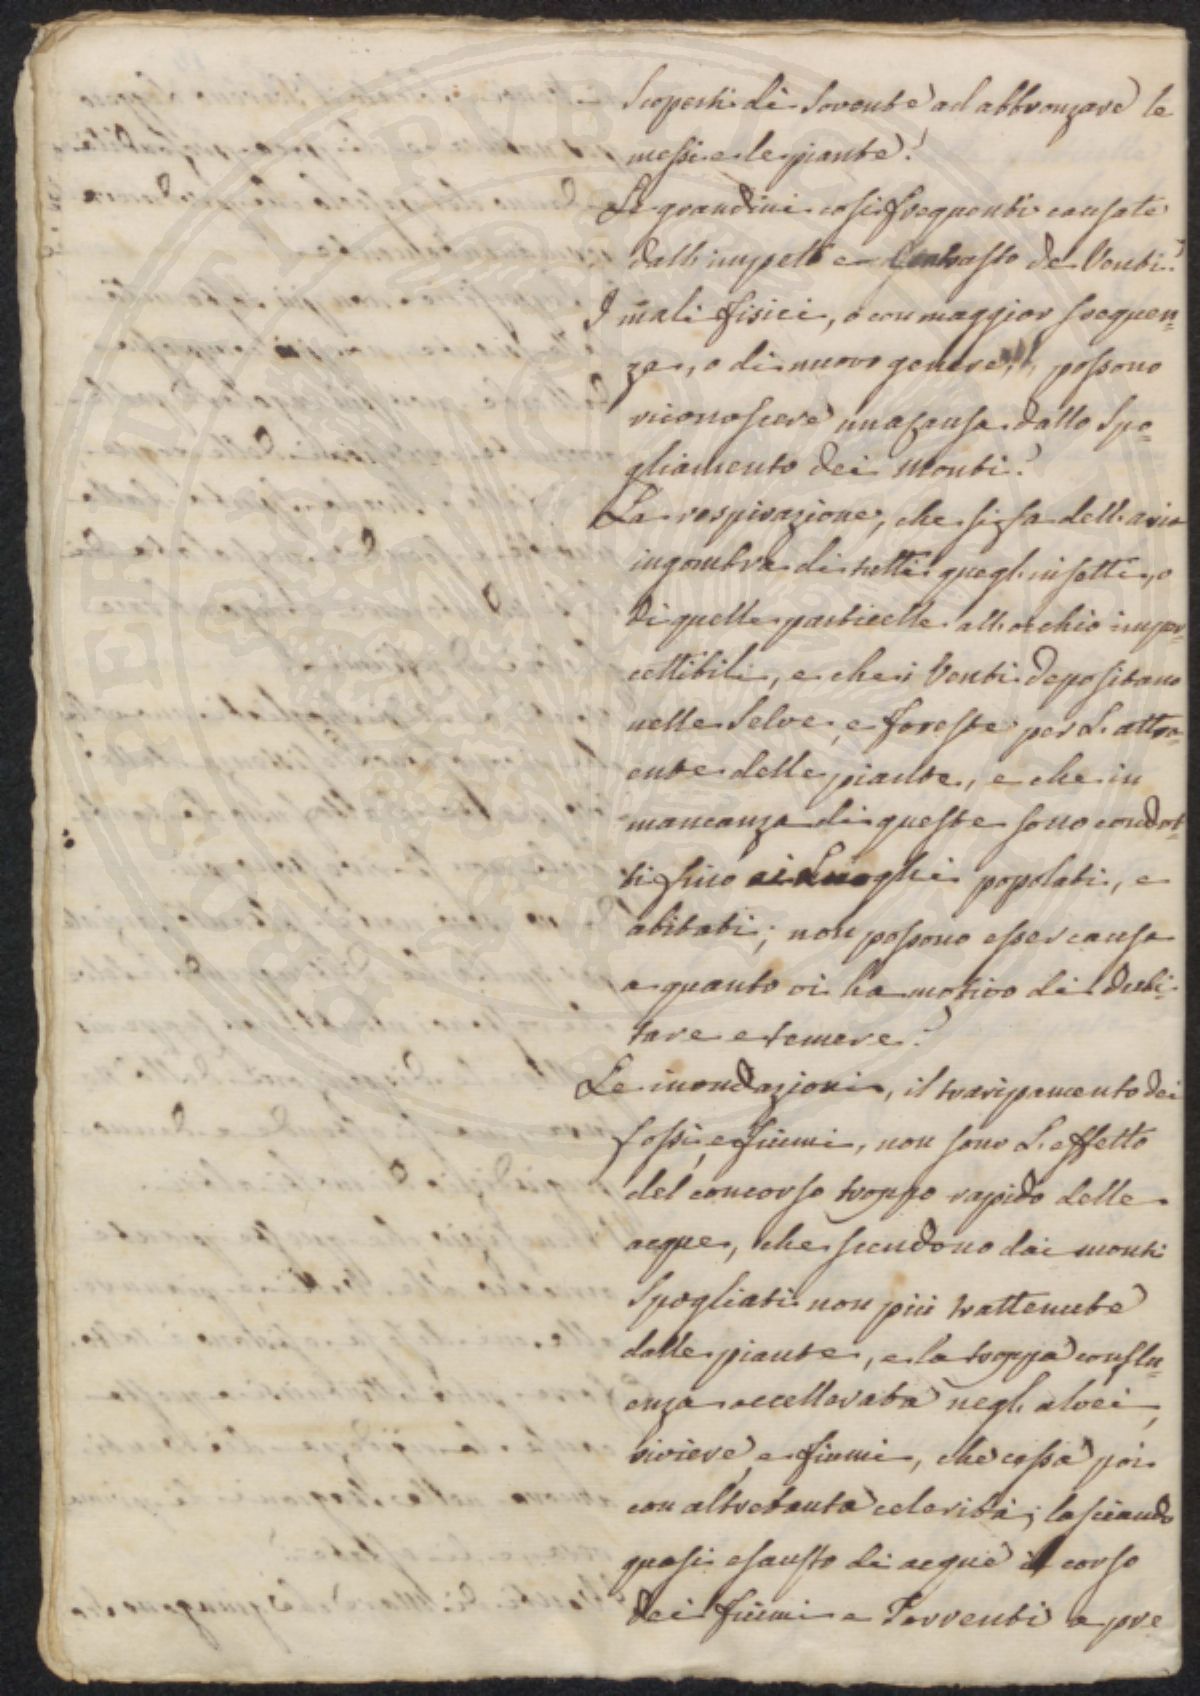 Scoperti di sovente ad abbronzare le
messi e le piante?
Le grandini così frequenti causate
dall'impeto e contrasto de Venti?
I mali fisici, o con maggior frequen=
za, o di nuovo genere, possono
riconoscere una causa dallo Spo=
gliamento dei Monti?
La respirazione, che si fa dell'aria
ingombra di tutti quegl'insetti, o
di quelle particelle all'occhio imper=
cettibili, e che i Venti depositano
nelle Selve, e foreste per l'attra=
ente delle piante, e che in
mancanza di queste sono condot=
ti fino ai Luoghi popolati, e
abitati; non possono esser causa
a quanto vi ha motivo di dubi=
tare e temere?
Le inondazioni, il traripamento dei
fossi, e fiumi, non sono l'effetto
del concorso troppo rapido delle
acque, che scendono dai monti
Spogliati non più trattenute
dalle piante, e la troppa conflu=
enza accellerata negl'alvei,
riviere, e fiumi, che cessa poi
con altretanta celerità; lasciando
quasi esausto di acque il corso
dei fiumi e Torrenti a pre